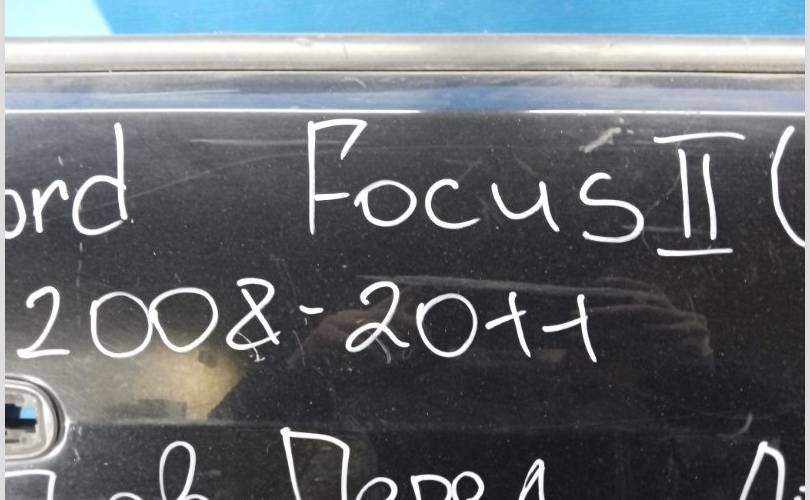 ord Focus II (
2008-2011
Лев Перед